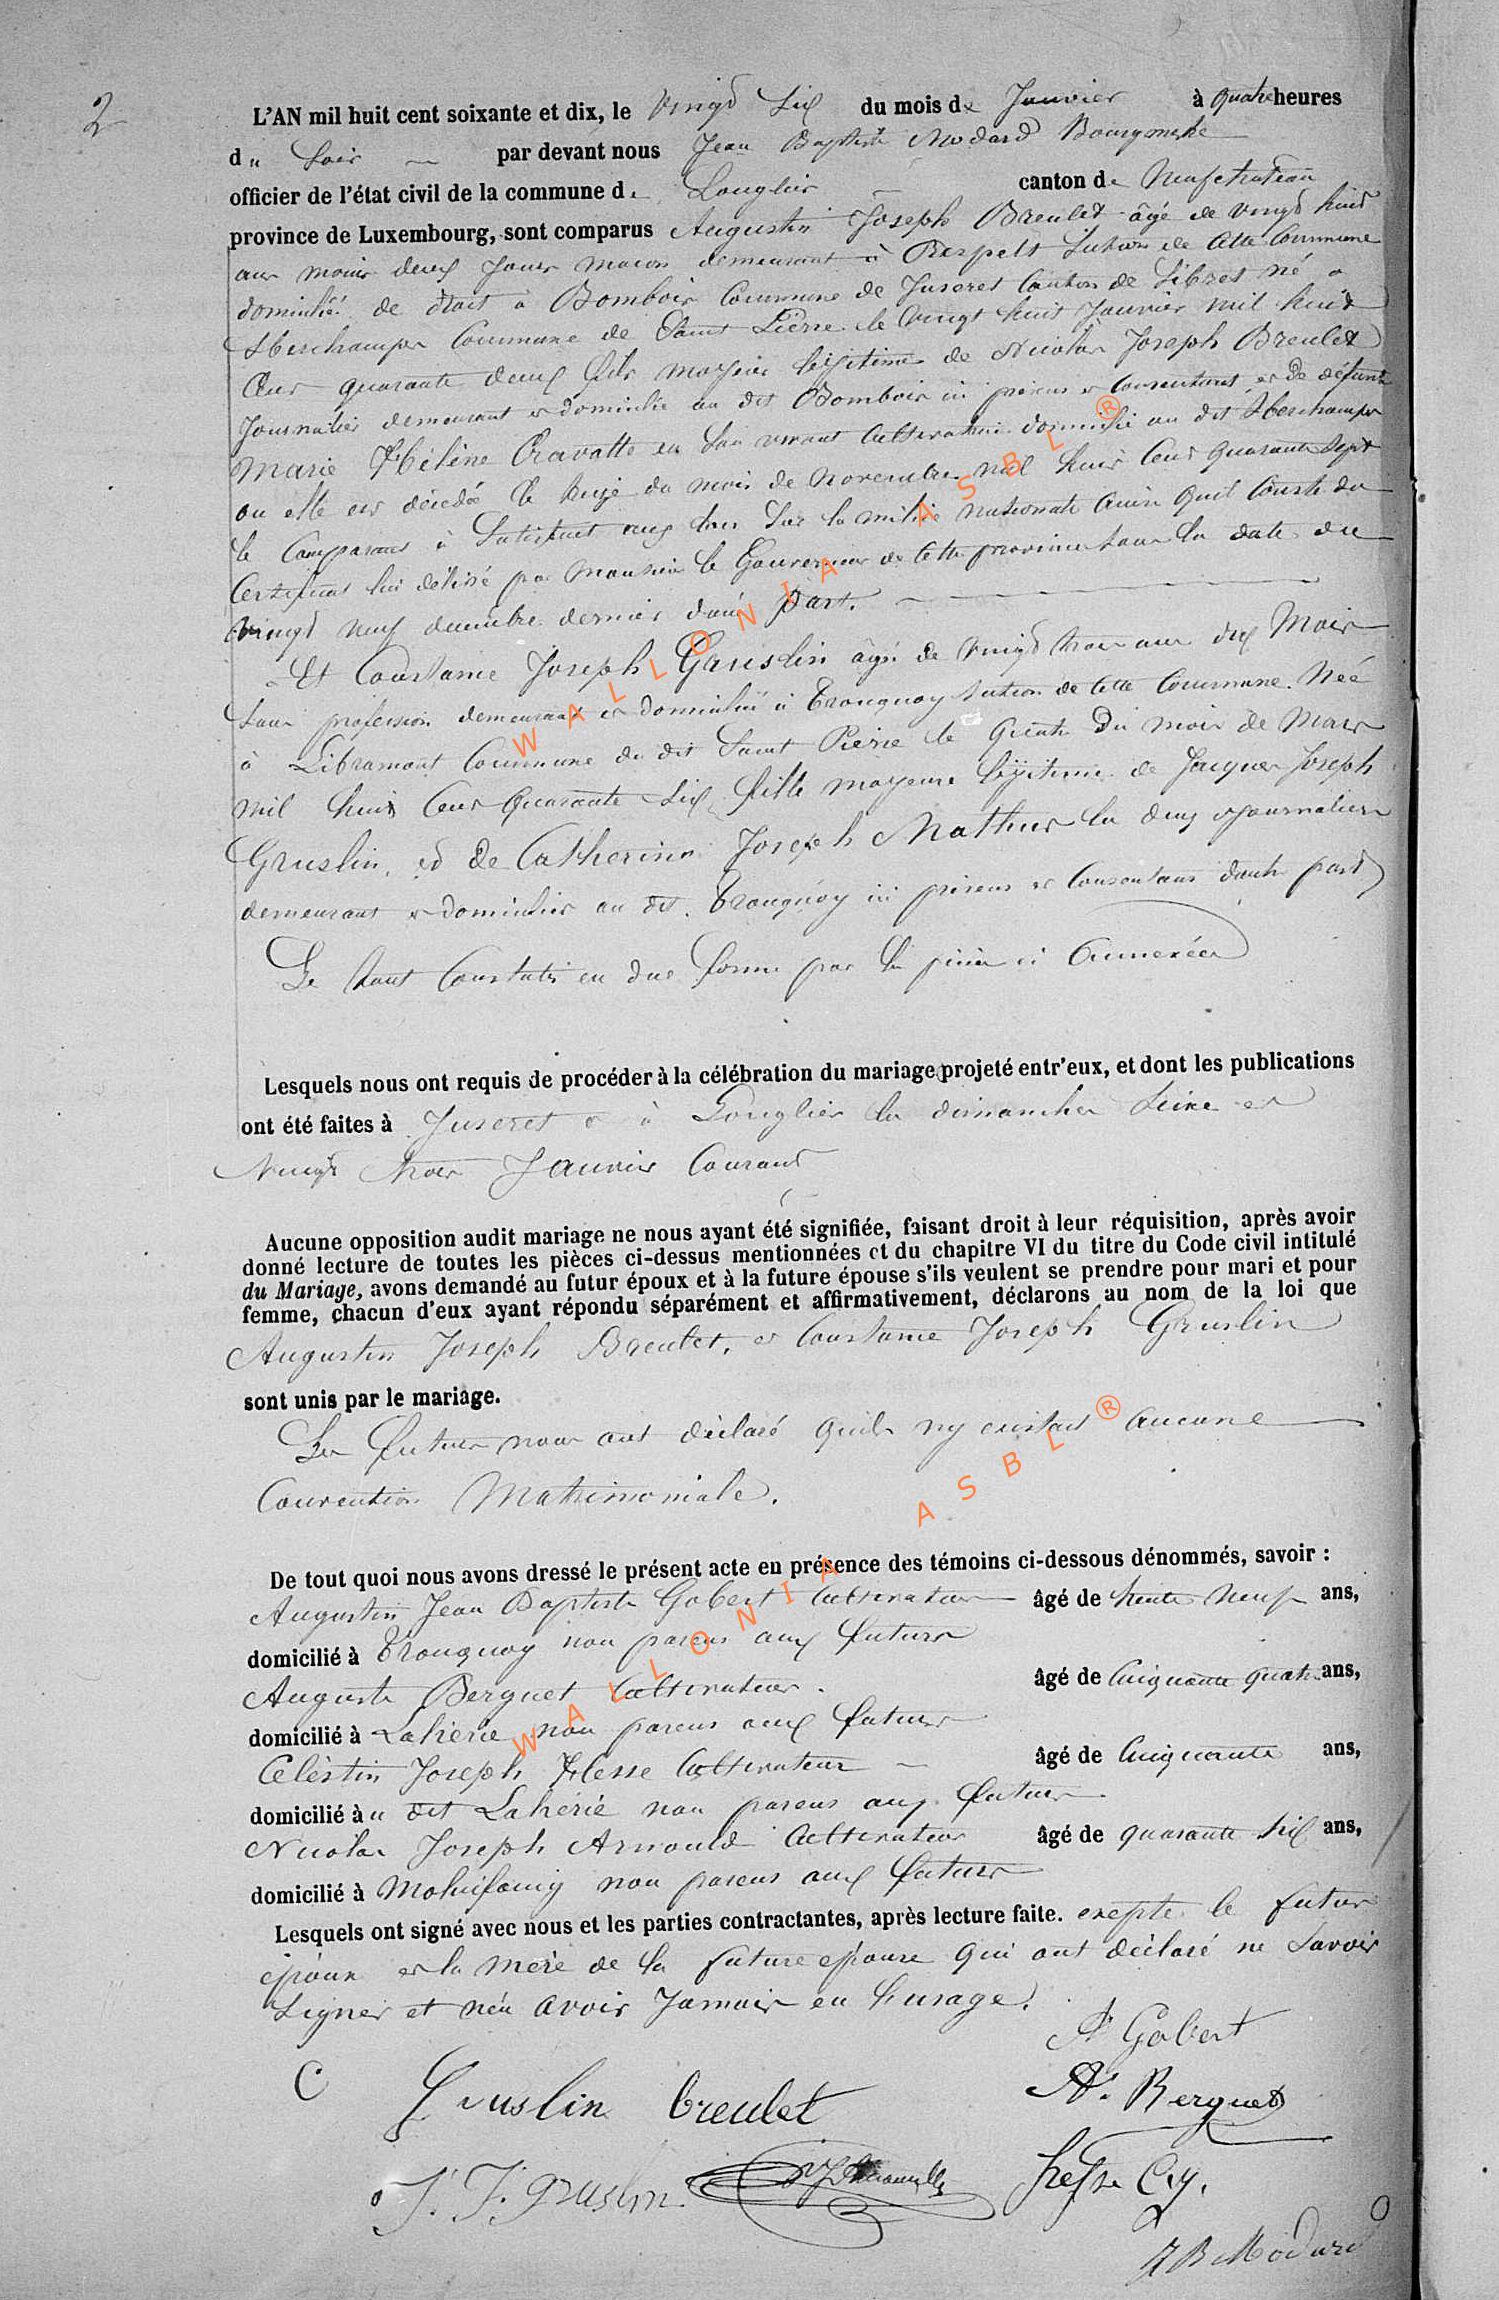 2
L'AN mil huit cent soixante et dix, le vingt Six du mois de Janvier à quatre heures
du Soir par devant nous Jean Baptiste Modard Bourgmestre
officier de l'état civil de la commune de Longlier canton de Neufchateau
province de Luxembourg, sont comparus Augustin Joseph Breulet âgé de vingt huit
ans moins deux Jours macon demeurant à Respelt Section de Cette Commune
domicilié de droit à Bombois Commune de Juseret Canton de Sibret né à
Sberchamps Commune de Saint Pierre le vingt huit Janvier mil huit
Cent quarante deux fils majeur légitime de Nicolas Joseph Breulet
Journalier demeurant et domicilié au dit Bombois ici présent et Consentant, et de défunte
Marie Hélène Cravatte en Son vivant Cultivatrice domicilié au dit Sberchamps
ou elle est décédée le du mois de novembre mil huit Cent quarante Sept
le Comparant à Satisfait aux lois Sur la milice nationale Ainsi Quil Conste du
Certificat lui délivré par Monsieur le Gouverneur de Cette province Sous la date du
vingt neuf decembre dernier d'une part.
Et Constance Joseph Gruslin âgée de vingt trois ans dix Mois
Sans profession demeurant et domicilié à Tronquoy Section de Cette Commune. Née
à Libramont Commune du dit Saint Pierre le Quinze Du mois de Mars
mil huit Cent Quarante Six fille majeure légitime de Jacques Joseph
Gruslin, et de Catherine Joseph Mathus les deux Journaliers
demeurant et domiciliés au dit Tronquoy ici présens et Consentans d'autre part
Le tout Constaté en due forme par les pièces ci Annexées
Lesquels nous ont requis de procéder à la célébration du mariage projeté entr'eux, et dont les publications
ont été faites à Juseret et à Longlier les dimanches Seize et
Vingt trois Janvier Courant
Aucune opposition audit mariage ne nous ayant été signifiée, faisant droit à leur réquisition, après avoir
donné lecture de toutes les pièces ci-dessus mentionnées et du chapitre VI du titre du Code civil intitulé
du Mariage, avons demandé au futur époux et à la future épouse s'ils veulent se prendre pour mari et pour
femme, chacun d'eux ayant répondu séparément et affirmativement, déclarons au nom de la loi que
Augustin Joseph Breulet, et Constance Joseph Gruslin
sont unis par le mariage.
Les futurs nous ont déclaré quils ny existait aucune
Convention Matrimoniale.
De tout quoi nous avons dressé le présent acte en présence des témoins ci-dessous dénommés, savoir :
Augustin Jean Baptiste Gobert Cultivateur âgé de trente neuf ans,
domicilié à Tronquoy non parens aux futurs
Auguste Berguet Cultivateur. âgé de Cinquante quatre ans,
domicilié à Lahérie non parens aux futurs
Célèstin Joseph Hesse Cultivateur âgé de Cinquante ans,
domicilié àu dit Lahérié non parens aux futurs
Nicolas Joseph Arnould Cultivateur âgé de quarante Six ans,
domicilié à Molinfaing non parens aux futurs
Lesquels ont signé avec nous et les parties contractantes, après lecture faite. exepté le futur
époux et la mère de la future épouse Qui ont déclaré ne Savoir
Signer et n'en avoir Jamais eu l'usage.
A Gobert
C Gruslin breulet A. Berguet
J. J. gruslin
J B Modard
WALLONIA ASBL ®
WALLONIA ASBL ®